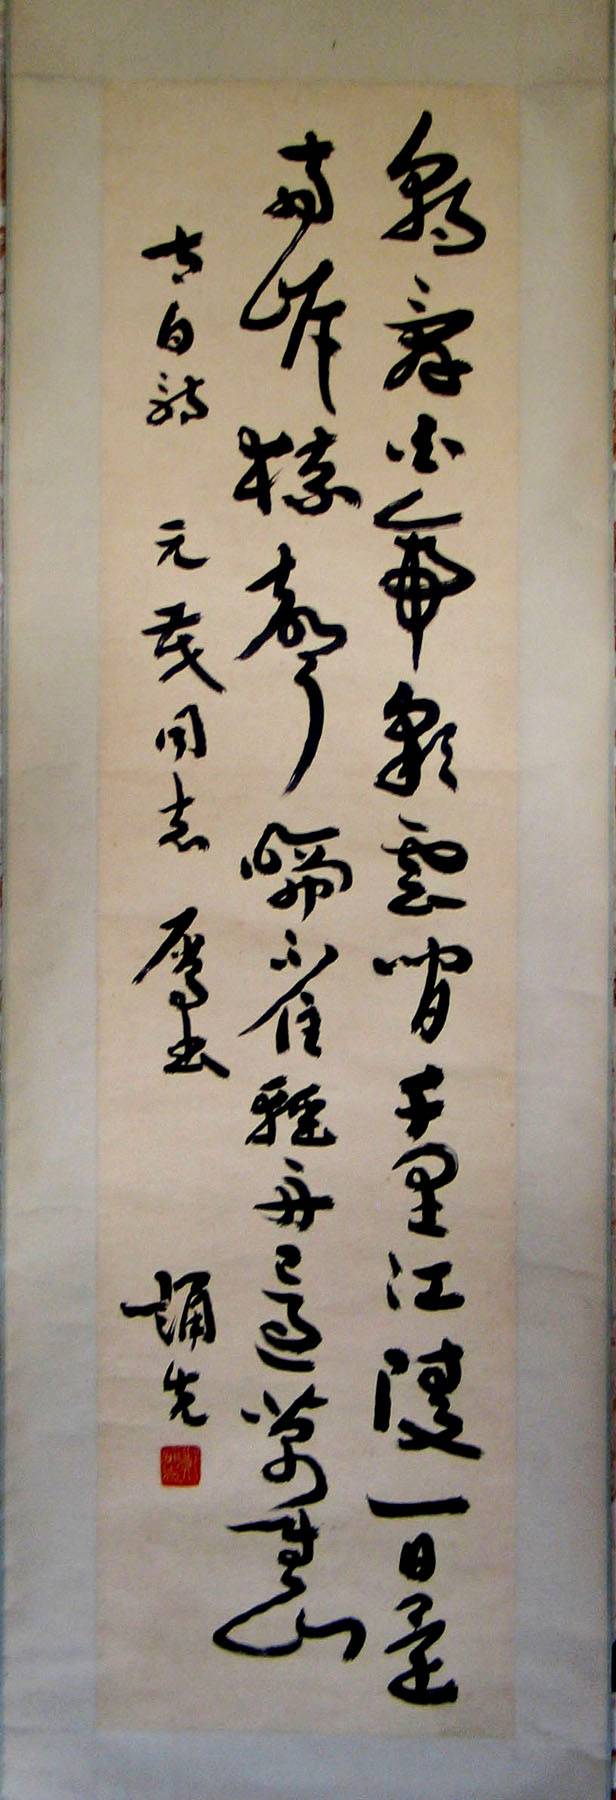 朝辞白帝彩雲間千里江陵一日還
兩岸猿聲啼不住輕舟已過萬重山
太白詩 元茂同志 屬書 誦先